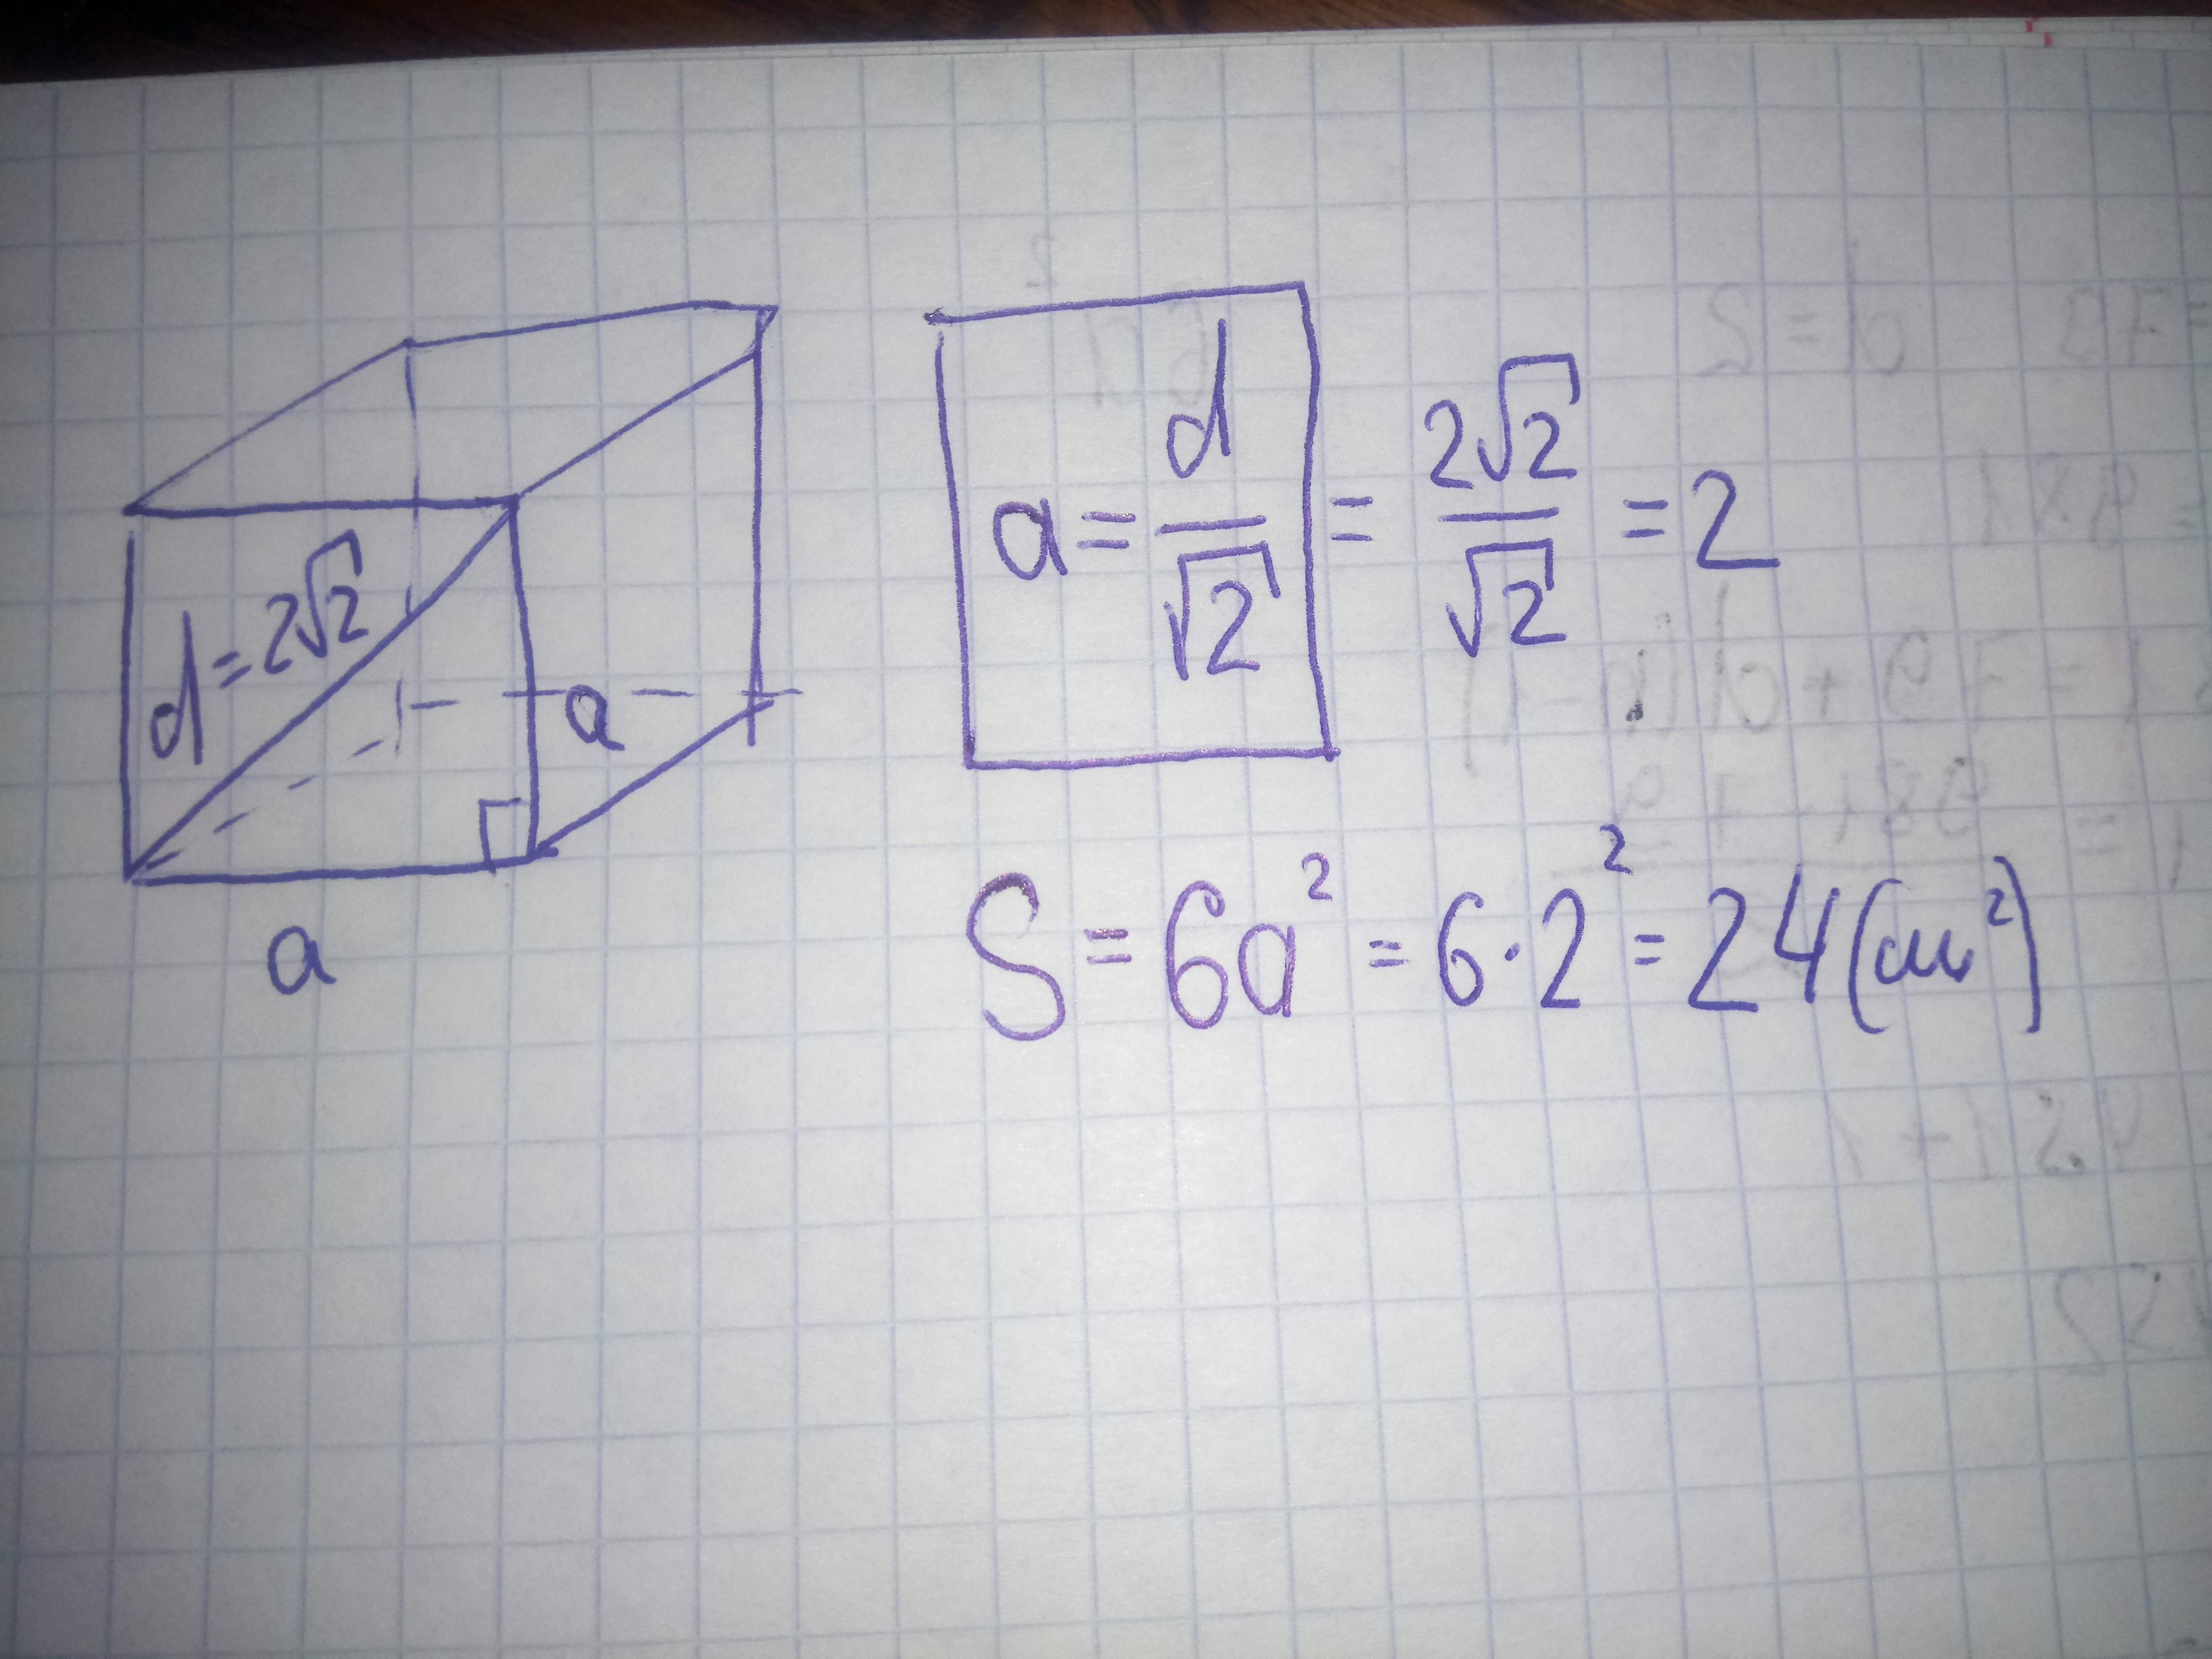 d=2√2
a
a
a = d/√2 = 2√2/√2 = 2
S = 6a² = 6·2² = 24(см²)